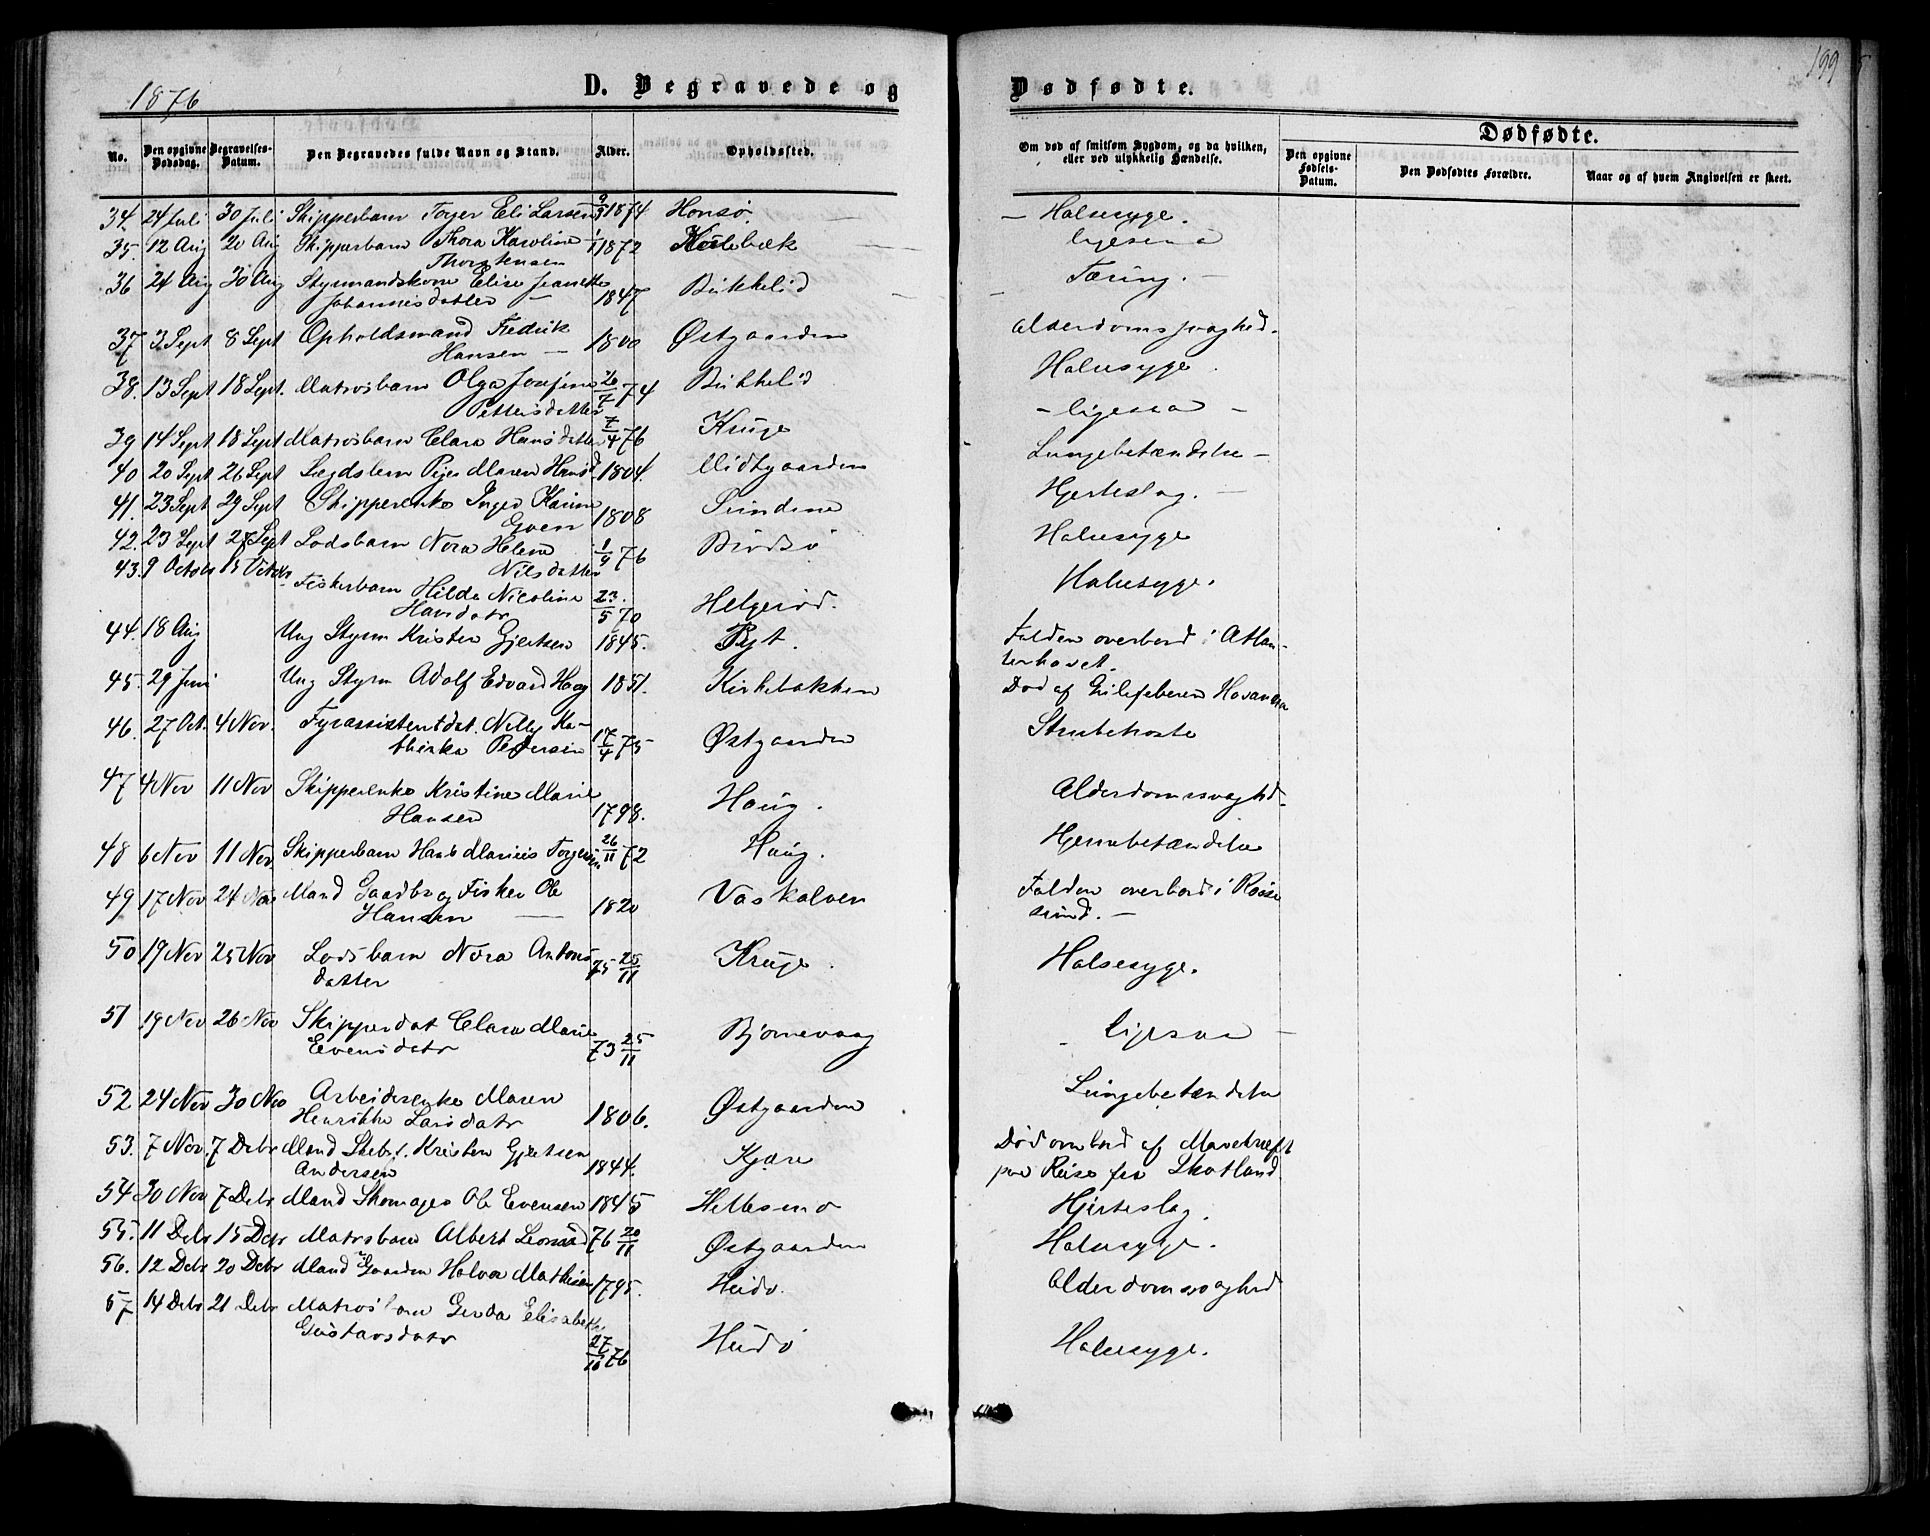 1876
D. Begravede og
Dødfødte.
199
No.
Den opgivne Dødsdag.
Begravelses-Datum.
Den Begravedes fulde Navn og Stand.
Alder.
Opholdssted.
Om død af smitsom Sygdom, og da hvilken, eller ved ulykkelig Hændelse.
Dødfødte.
Den opgivne Fødsels-Datum.
Den Dødfødtes Forældre.
Naar og af hvem Angivelsen er skeet.
34. 24 Juli 30 Juli Skipperbarn Torger Eli Larsen 1874 Honsø - Halsesyge.
35. 12 Aug 20 Aug Skipperbarn Thora Karoline 1/1 1872 Kulebæk ligesaa
Thorstensen
36 24 Aug 30 Aug Styrmandskone Elise Jeanette Tæring. -
Johannesdatter - 1847 Bukkelid
37 3 Sept 8 Sept Opholdsmand Fredrik Alderdomssvaghed.
Hansen - 1800 Østgaarden
38. 13 Sept 18 Sept. Matrosbarn Olga Josefine 26/7 74 Bukkelid Halsesyge.
Pettersdatter
39 14 Sept 18 Sept Matrosbarn Clara Hansdatter 7/4 76 Kruge - ligesaa -
40 20 Sept 26 Sept Lægdslem Pige Maren Hansd 1804. Midtgaarden Lungebetændelse -
41. 23 Sept 29 Sept Skipperenke Inger Karine Hjerteslag. -
Even 1808 Sundene
42. 23 Sept 27 Sept Lodsbarn Nora Helene 1/4 76 Burdø Halsesyge
Nilsdatter
43. 9 Octob 15 Octob Fiskerbarn Hilda Nicoline 23/5 70 Helgerød. Halsesyge.
Hansdatr
44. 18 Aug Ung Styrm Kristen Gjertsen 1845. Byt. Falden overbord i Atlan-
terhavet.
45. 29 Juni Ung Styrm Adolf Edvard Hog 1851. Kirkebakken Død af Gulefeberen Havanna
46. 27 Oct. 4 Nov. Fyrassistentdat. Nelly Ka- Strubehoste
thinka Pedersen 17/4 75 Østgaarden
47 4 Nov 11 Nov Skipperenke Kristine Marie Alderdomssvaghd.
Hansen 1798. Haug.
48 6 Nov 11 Nov. Skipperbarn Hans Marius Torgersen 26/11 72 Haug. Hjernebetændelse
49 17 Nov 24 Nov Mand Gaadbr og Fisker Ole Vaskalven Falden overbord i Røsse
Hansen - 1820 sund. -
50 19 Nov 25 Nov Lodsbarn Nora Antons 75 25/11 Kruge. Halsesyge.
datter
51 19 Nov 26 Nov Skipperdat Clara Marie Bjørnevaag - ligesaa -
Evensdatr 73 25/11
52 24 Nov 30 Nov Arbeiderenke Maren Lungebetændelse
Henrikke Larsdatr 1806. Østgaarden
53. 7 Nov. 7 Debr Mand Skibsf. Kristen Gjertsen Død ombord af Mavekræft
Andersen 1844. Kjære paa Reise fra Skotland.
54 30 Nov 7 Debr Mand Skomager Ole Evensen 1845 Hellesund Hjerteslag.
55. 11 Debr 15 Debr Matrosbarn Albert Leonard 76 20/11 Østgaarden Halsesyge.
56. 12 Debr 20 Debr Mand Gaarden Halvor Mathisen 1795. Huidø. Alderdomssvaghed
57 14 Debr 21 Debr Matrosbarn Gerda Elisabeth
Gustavsdatr 27/10 76 Huidø Halsesyge.